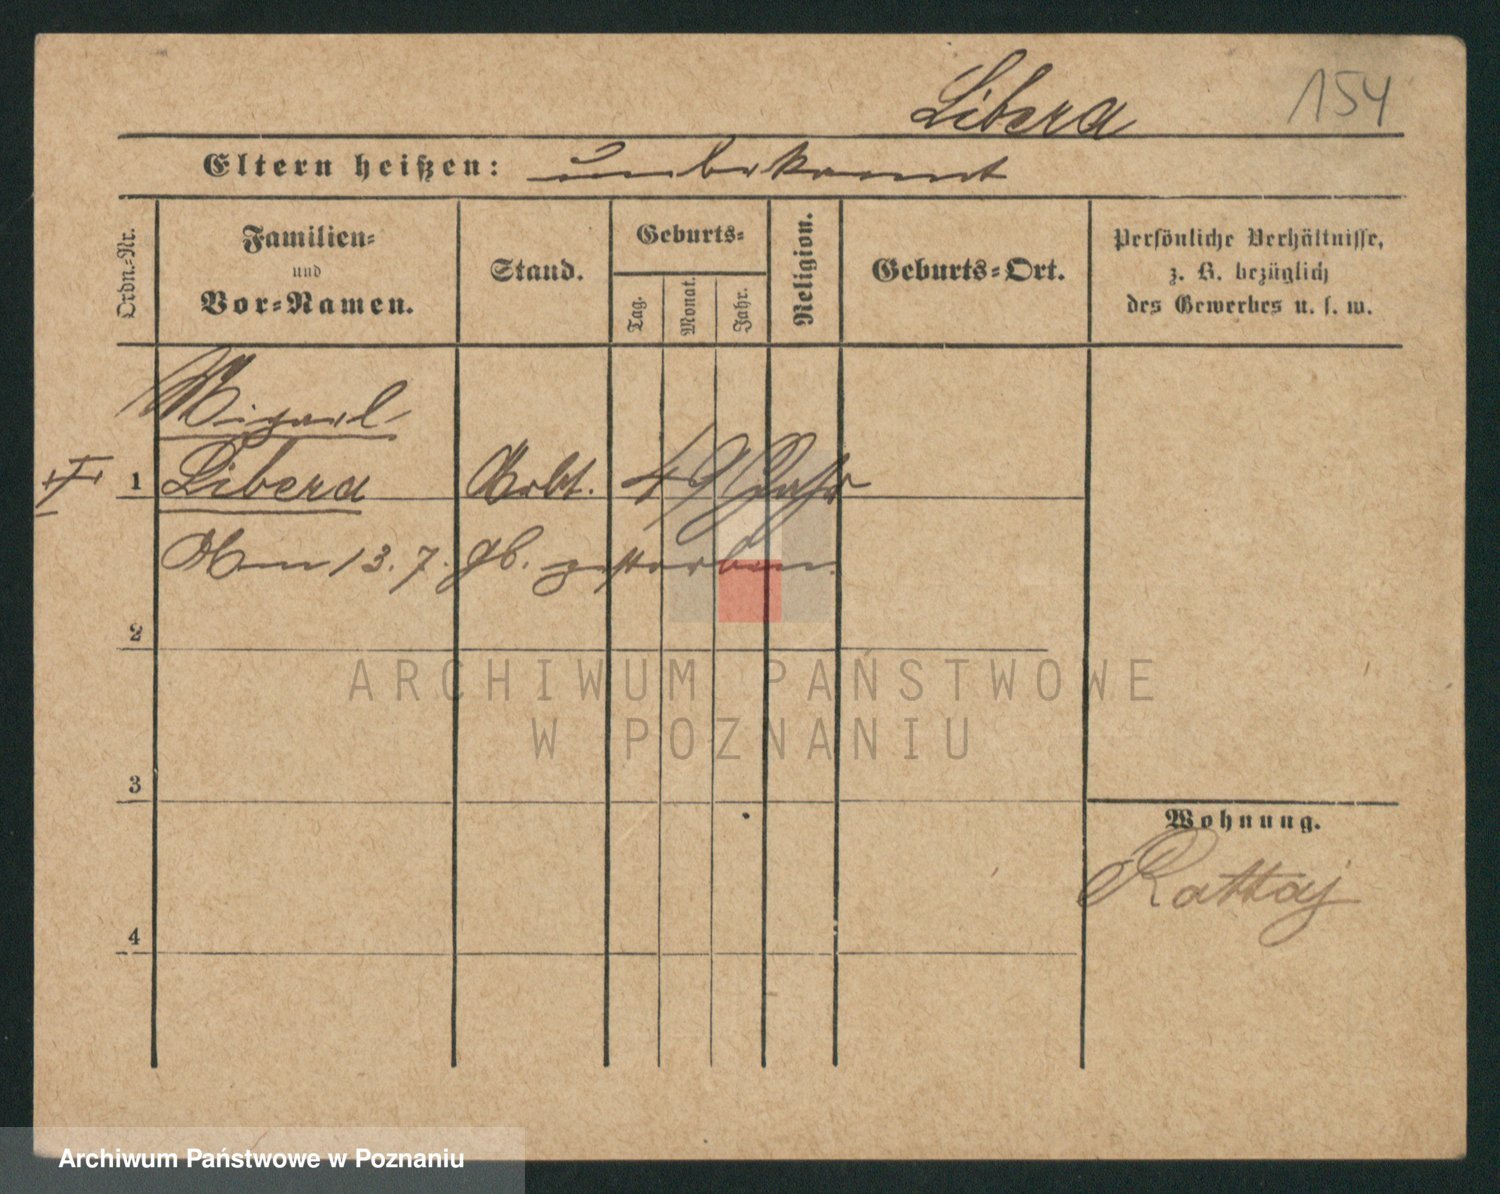 Libera 154
Eltern heißen: unbekannt
Ordn.-Nr.
Familien-
und
Vor-Namen.
Stand.
Geburts-
Tag.
Monat.
Jahr.
Religion.
Geburts-Ort.
Persönliche Verhältnisse,
z. B. bezüglich
des Gewerbes u. s. w.
1 Libera Arbt. 49 Jahr
Am 13. 7. gestorben.
2
ARCHIWUM PAŃSTWOWE
W POZNANIU
3
Wohnung.
Rattaj
4
Archiwum Państwowe w Poznaniu